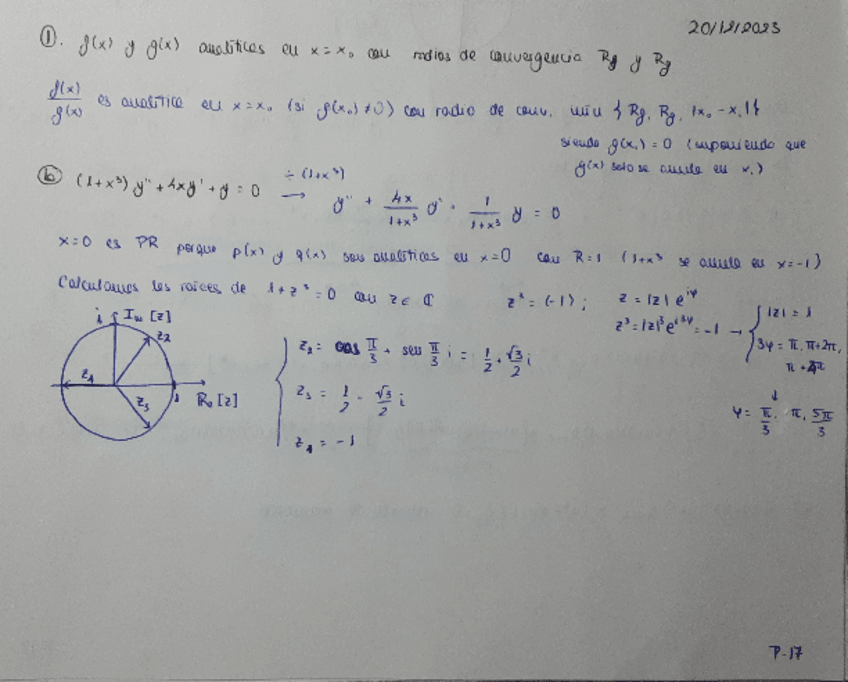 20/12/2023
①. f(x) y g(x) analíticas en x = x₀ con radios de convergencia Rf y Rg
f(x)/g(x) es analítica en x = x₀ (si g(x₀) ≠ 0) con radio de conv. min { Rf, Rg, |x₀ - x₁|}
siendo g(x₁) = 0 (suponiendo que
g(x) solo se anula en x₁)
ⓑ (1+x³) y'' + 4xy' + y = 0 ÷ (1+x³) → y'' + 4x/(1+x³) y' + 1/(1+x³) y = 0
x=0 es PR porque p(x) y q(x) son analíticas en x=0 con R=1 (1+x³ se anula en x=-1)
Calculamos las raíces de 1+z³ = 0 con z ∈ ℂ z³ = (-1); z = |z| e^{iφ}
z³ = |z|³ e^{i3φ} = -1 → { |z| = 1
3φ = π, π+2π,
π+4π
↓
φ = π/3, π, 5π/3
i Im [z]
z₂
z₁
z₃
1 Re [z]
z₂ = cos π/3 + sen π/3 i = 1/2 + √3/2 i
z₃ = 1/2 - √3/2 i
z₁ = -1
P-17